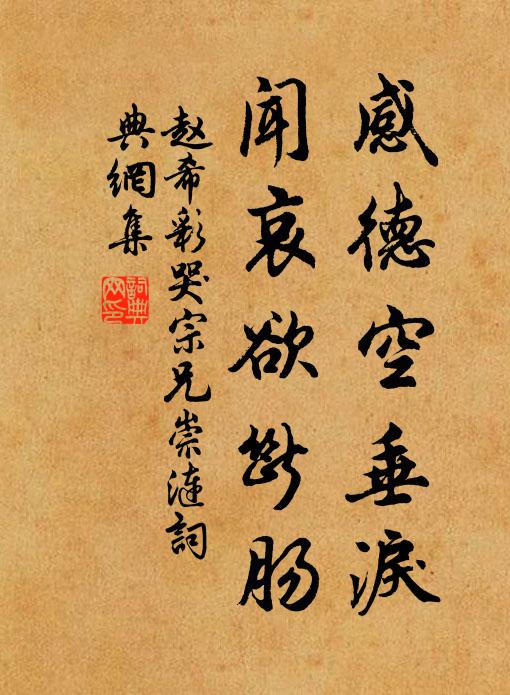 感德空垂淚
聞哀欲断肠
赵希彩哭宗兄崇涟詞
典網集
詞典
网印